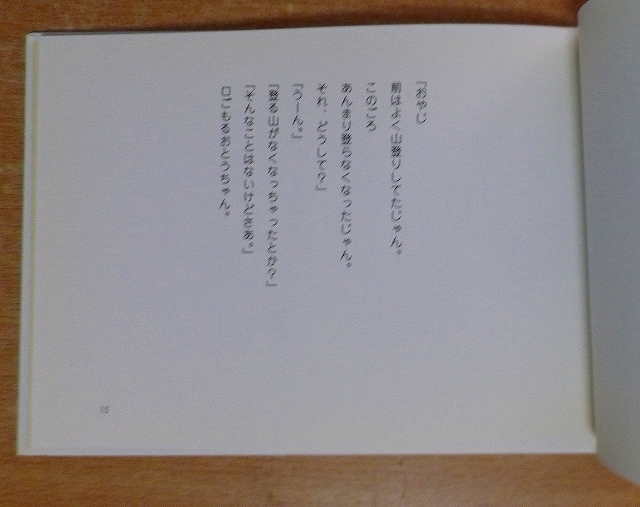 『おやじ
前はよく山登りしてたじゃん。
このごろ
あんまり登らなくなったじゃん。
それ、どうして?』
『うーん。』
『登る山がなくなっちゃったとか?』
『そんなことはないけどさあ。』
口ごもるおとうちゃん。